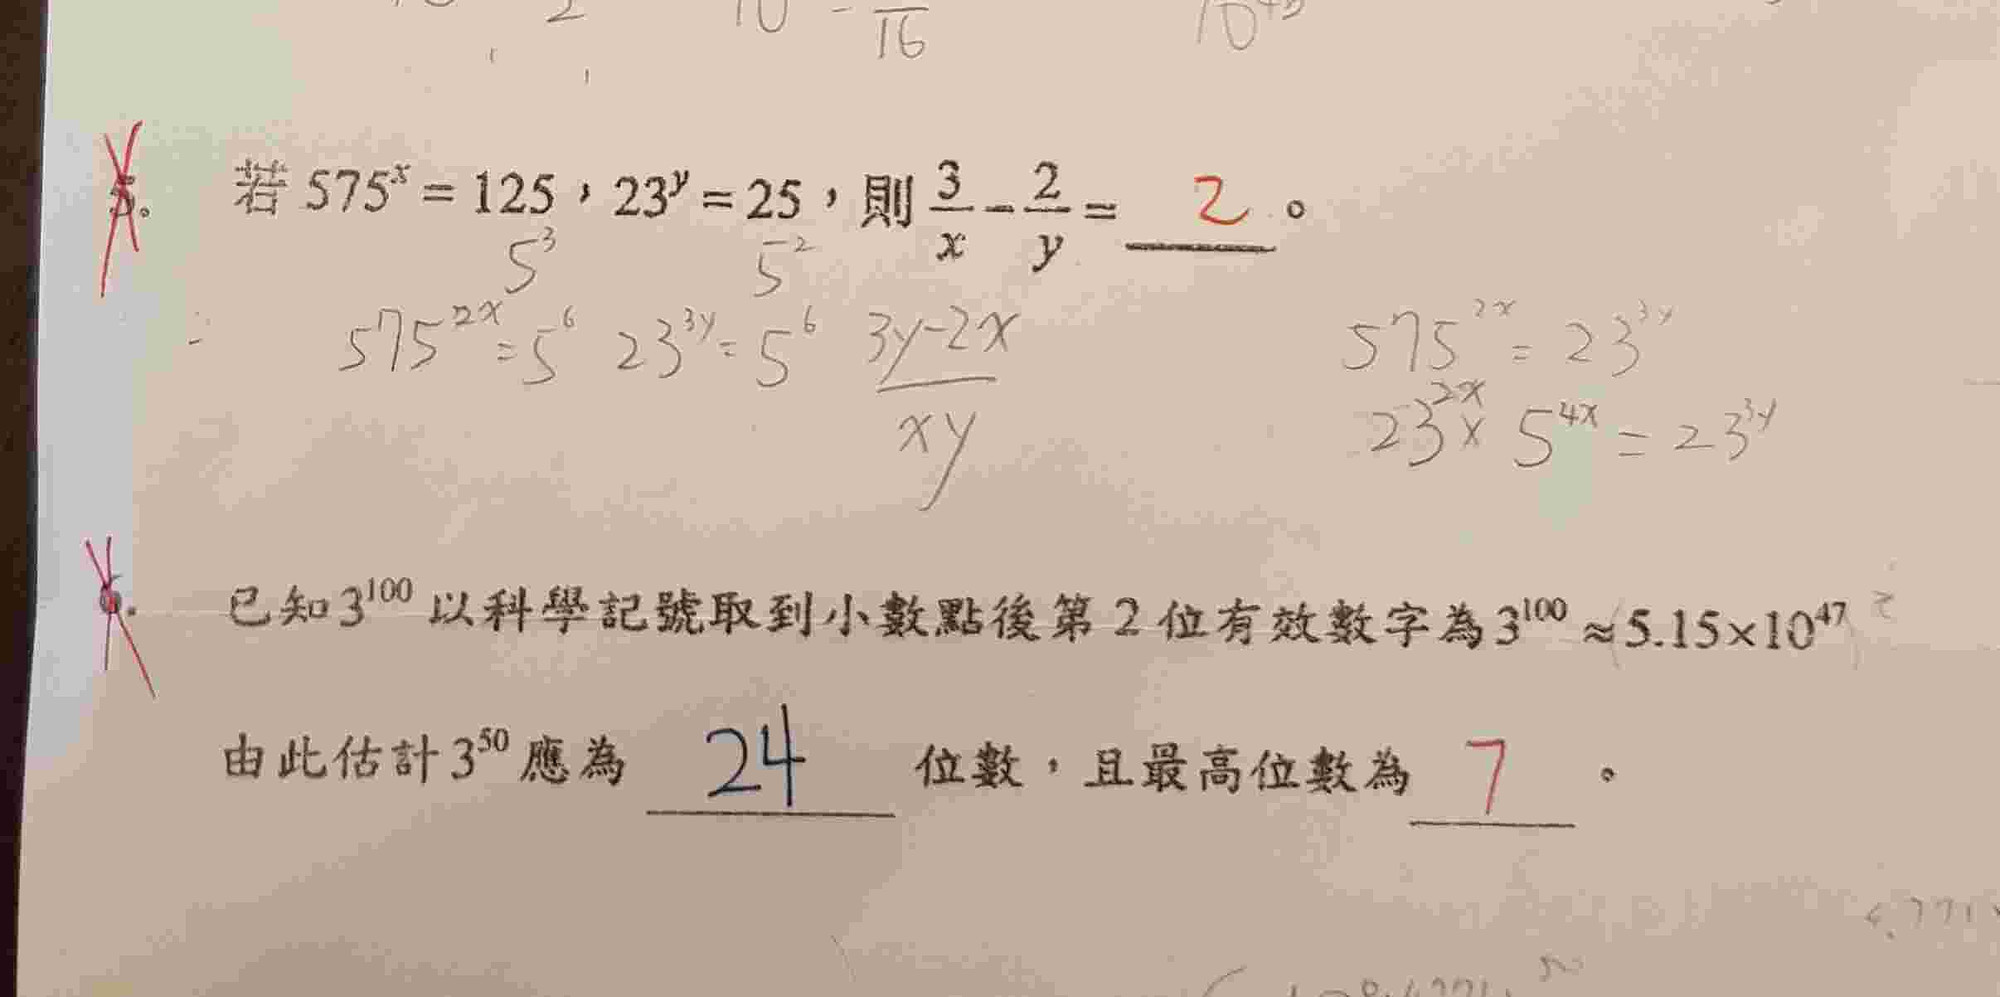 16
5. 若 575^x = 125，23^y = 25，則 3/x − 2/y = 2 。
5^3 5^2
575^2x = 5^6 23^3y = 5^6 3y-2x/xy 575^2x = 23^3y
23^2x × 5^4x = 23^3y
6. 已知 3^100 以科學記號取到小數點後第 2 位有效數字為 3^100 ≈ 5.15×10^47
由此估計 3^50 應為 24 位數，且最高位數為 7 。